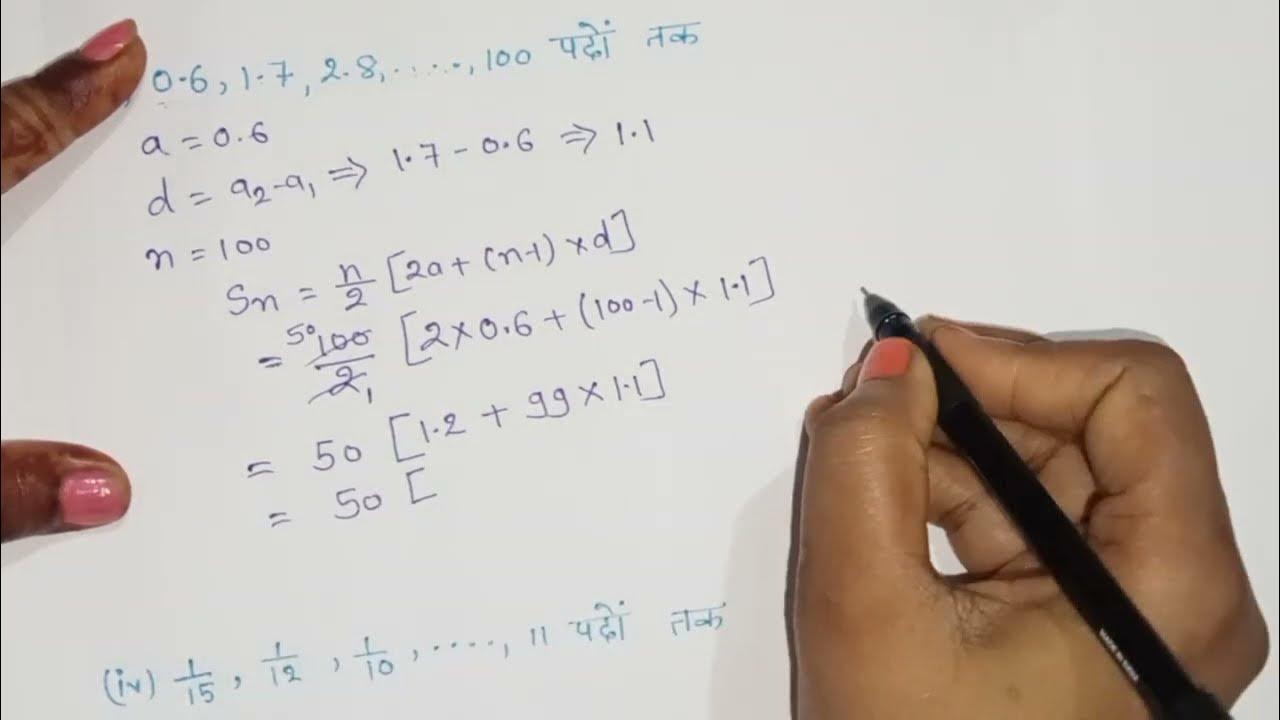 0.6, 1.7, 2.8, ....., 100 पदों तक
a = 0.6
d = a₂-a₁ ⇒ 1.7 - 0.6 ⇒ 1.1
n = 100
Sn = n/2 [2a + (n-1) × d]
= 50 100/2 1 [2×0.6 + (100-1) × 1.1]
= 50 [1.2 + 99 × 1.1]
= 50 [
(iv) 1/15, 1/12, 1/10, ...., 11 पदों तक